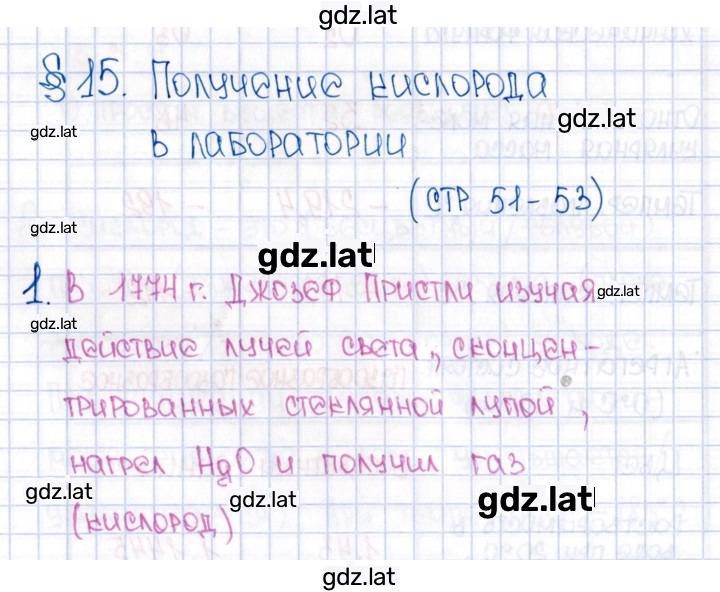 gdz.lat
§ 15. Получение кислорода
gdz.lat gdz.lat
в лаборатории
(стр 51-53)
gdz.lat
gdz.lat
1. В 1774 г. Джозеф Пристли изучая gdz.lat
gdz.lat
действие лучей света, сконцен-
трированных стеклянной лупой,
нагрел HgO и получил газ
gdz.lat gdz.lat gdz.lat
(кислород)
gdz.lat